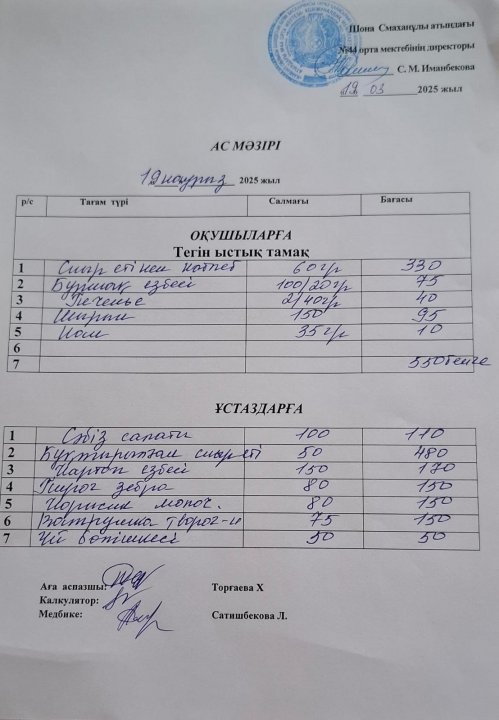 Шона Смаханұлы атындағы
№44 орта мектебінің директоры
С. М. Иманбекова
19 03 2025 жыл
АС МӘЗІРІ
19 наурыз 2025 жыл
р/с Тағам түрі Салмағы Бағасы
ОҚУШЫЛАРҒА
Тегін ыстық тамақ
1 Сиыр етінен котлет 60гр 330
2 Бұршақ езбесі 100/20гр 75
3 Печенье 2/40гр 40
4 Шырын 150 95
5 Нан 35гр 10
6
7 550теңге
ҰСТАЗДАРҒА
1 Сәбіз салаты 100 110
2 Бұқтырылған сиыр еті 50 480
3 Картоп езбесі 150 170
4 Пирог зебра 80 150
5 молоч. 80 150
6 Ватрушка творог-и 75 150
7 Үй бөлішкесі 50 50
Аға аспазшы: Торғаева Х
Калкулятор:
Медбике: Сатишбекова Л.